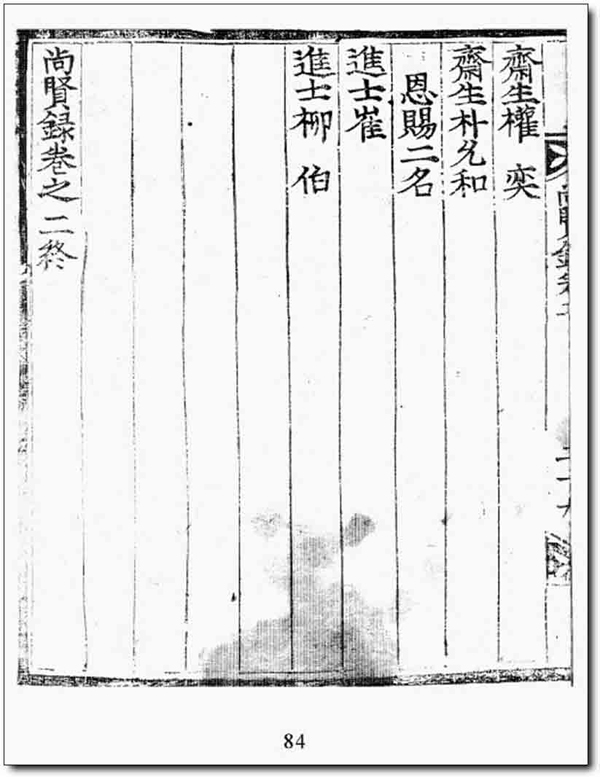 齋生權　奕
齋生朴兌和
恩賜二名
進士崔
進士柳　伯
尚賢録卷之二終
84